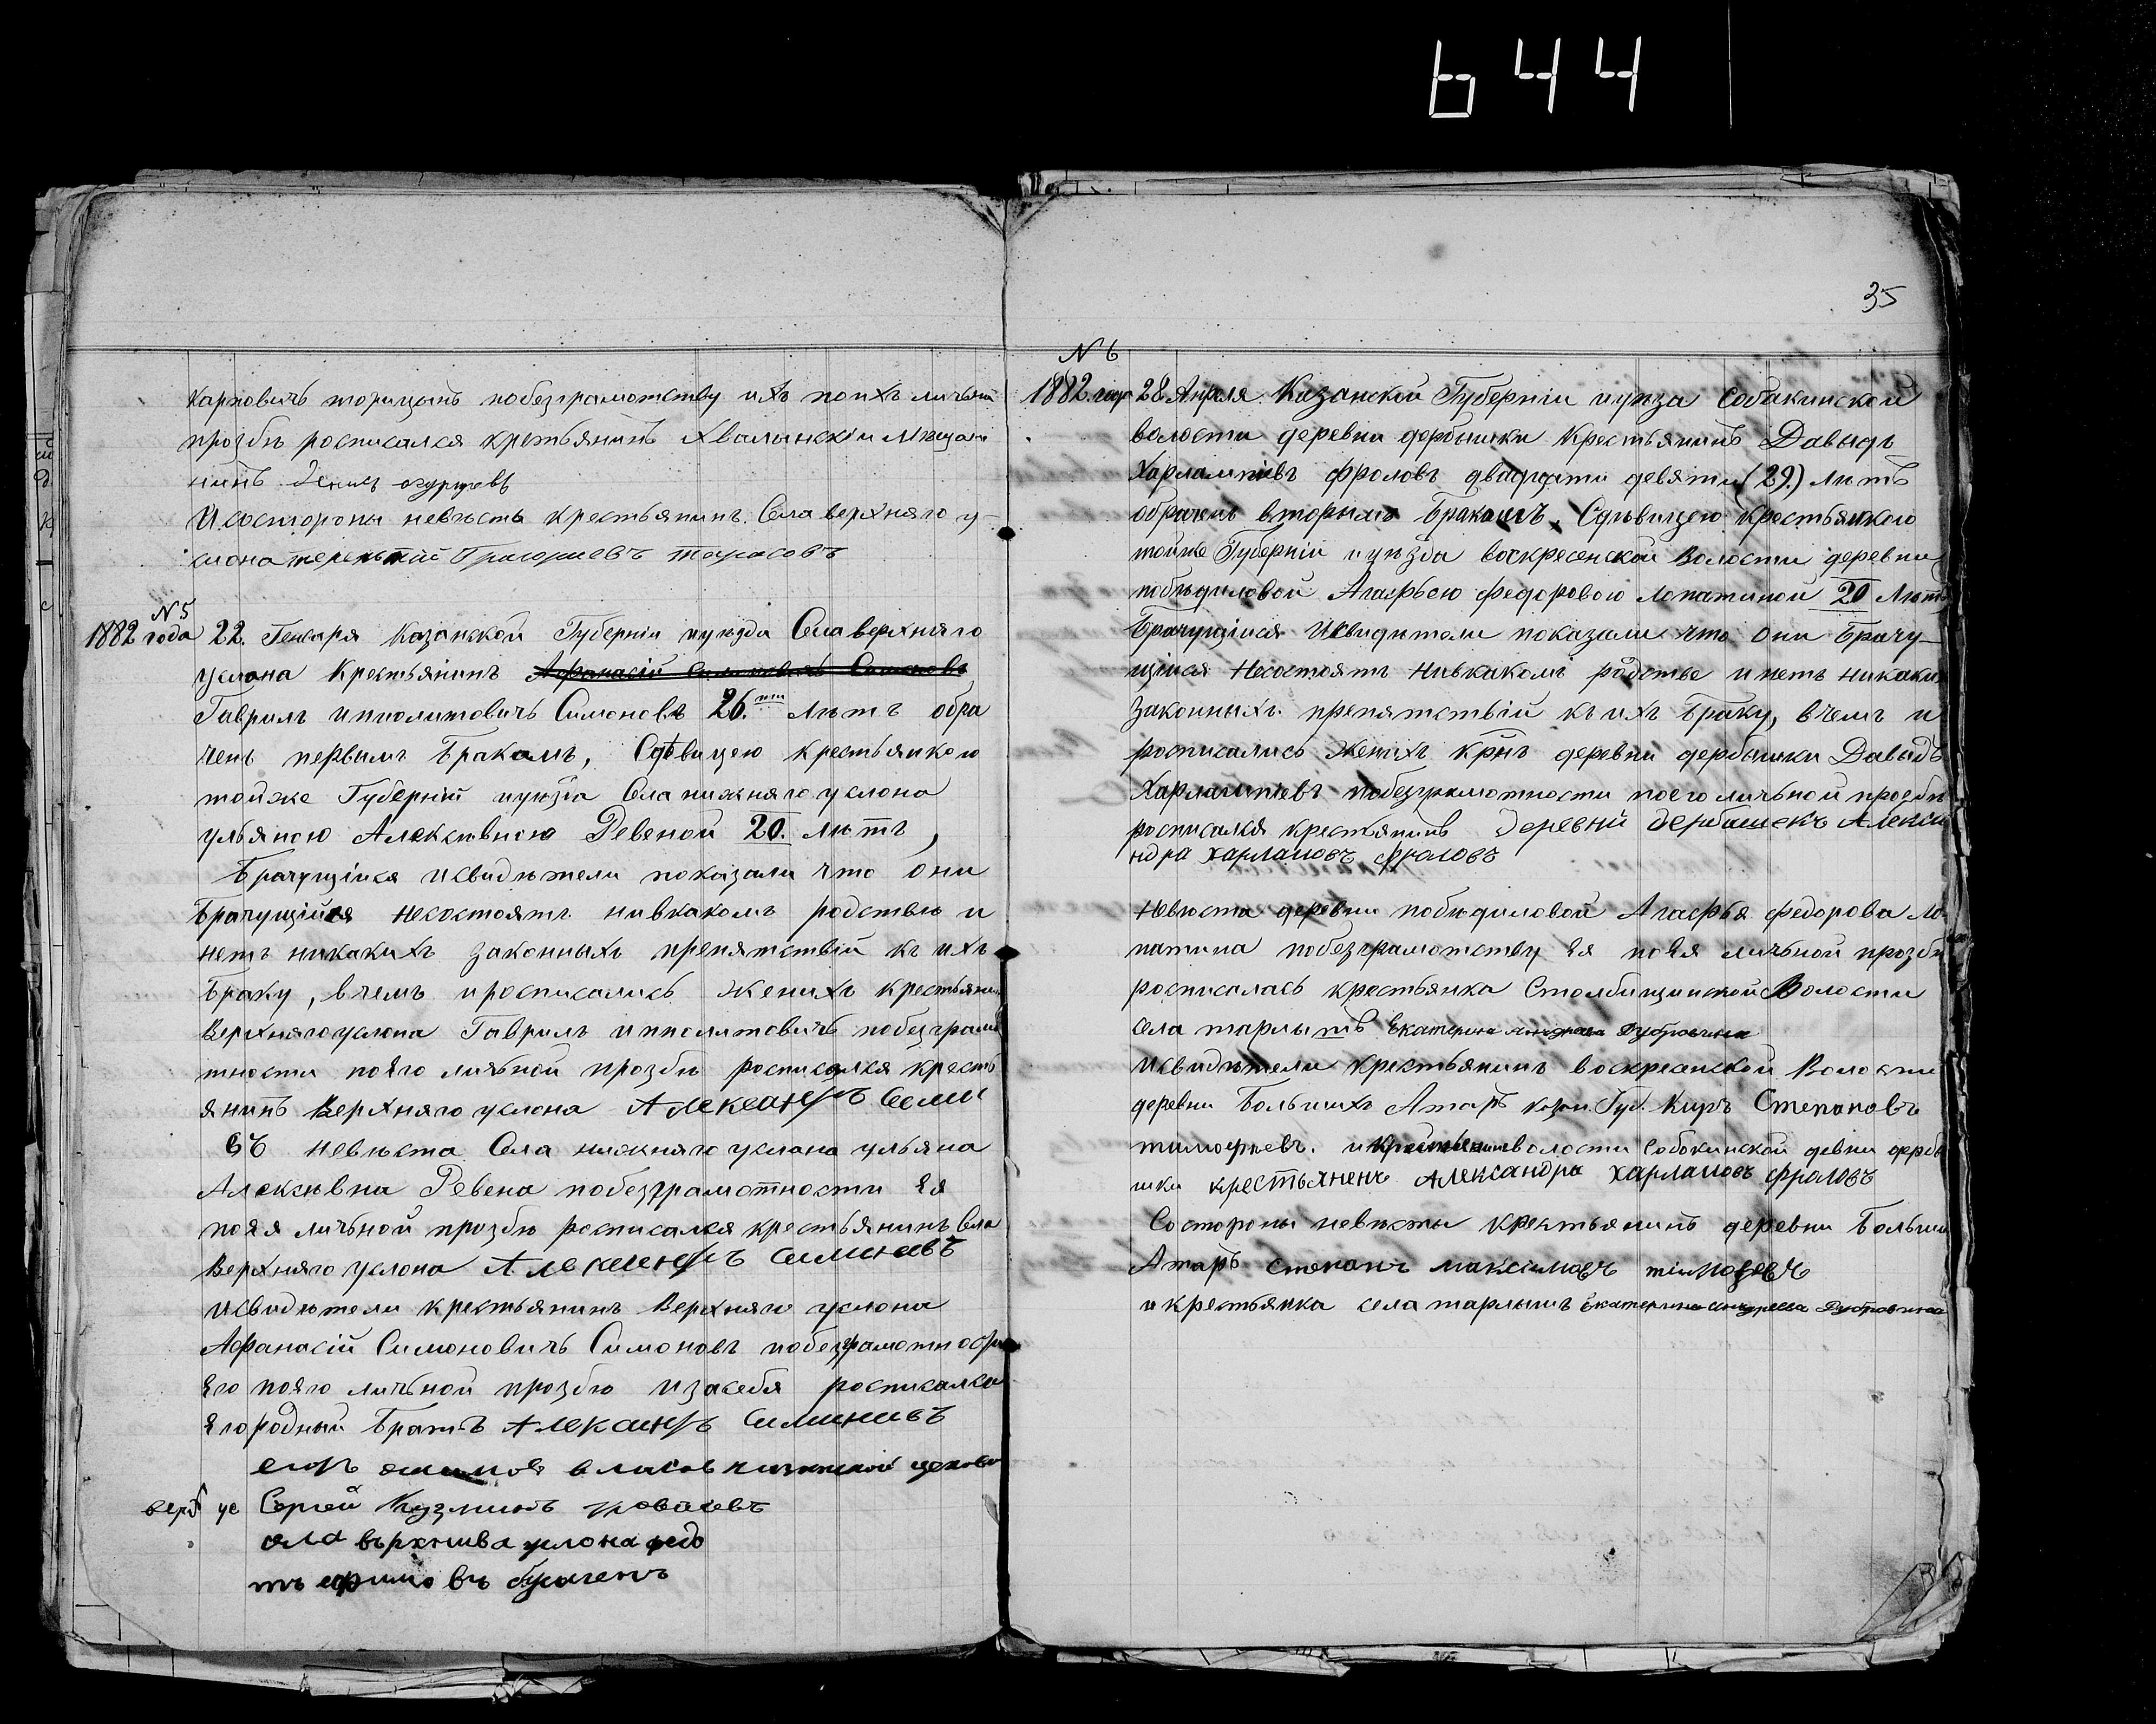 644
35
Карповичъ торицынъ побезграмотству ихъ поихъ личьной
прозбѣ росписался крестьянинъ Хвалынскiи Мѣщани
нинъ
Исостороны невѣсты крестьянинъ Села верхняго у-
слона Григорiевъ тарасовъ
N 5
1882 года 22 Генваря Казанской Губернiи иуѣзда Села верхняго
услона Крестьянинъ
Гаврилъ иполитовичъ Симоновъ 26 лѣтъ обра
ченъ первымъ Бракомъ, Сдѣвицею крестьянкою
тойже Губернiи иуѣзда Села нижняго услона
ульяною Алексѣвною Ревеной 20. лѣтъ,
Брачущiися исвидѣтели показали что они
Брачущiйся несостоятъ нивкакомъ родствѣ и
нетъ никакихъ законныхъ препятствiй къ ихъ
Браку, вчемъ иросписались женихъ крестьяни
Верхняго услона Гаврилъ ипполитовичъ побезграмо
тности поѣго личьной прозбѣ росписался кресть
янинъ Верхняго услона
невѣста Села нижняго услона ульяна
Алексѣвна Ревена побезграмотности ѣя
поѣя личьной прозбѣ росписался крестьянинъ Села
Верхняго услона
исвидѣтели крестьянинъ Верхняго услона
Афанасiй Симоновичъ Симоновъ побезграмотности
ѣго поѣго личьной прозбѣ изасебя росписался
ѣгородный Братъ
Сергей Кузминъ
села верхнива услона
N 6
1882 года 28 Апреля Казанской Губернiи иуѣза Собакинской
волости деревни дербышки Крестьянинъ Давыдъ
Харлампiевъ фроловъ двадцати девяти (29.) лѣтъ
обраченъ вторымъ Бракомъ. Сдѣвицею крестьянкою
тойже Губернiи иуѣзда воскресенской Волости деревни
побѣдиловой Агафьею Федоровою Лопатиной 20 лѣтъ
Брачущiися Исвидители показали что они Брачу-
щiися Несостоятъ Нивкакомъ родстве инетъ никаки
Законныхъ препятствiй къ ихъ Браку, вчемъ и
росписались женихъ крнъ деревни дербышки Давыдъ
Харлампiевъ побезграмотности поего личьной прозбѣ
росписался крестьянинъ Деревни Дербашекъ Алекса
ндра харламовъ фроловъ
Невѣста деревни побѣдиловой Агафья Федорова Ло
патина побезграмотству ѣя поѣя личьной прозбѣ
росписалась крестьянка Столбищинской Волости
села тарлышъ Екатерина Дубровина
Исвидѣтели крестьянинъ воскресенской Волости
деревни Большихъ Атаръ казан. Губ. Киръ Степановъ
тимофѣевъ. и волости Собокинской девни дербы
шки крестьяненъ Александра харламовъ фроловъ
Состороны невѣсты крестьянинъ деревни Больши
Атаръ Степанъ максимовъ тимофеевъ
и крестьянка села тарлышъ Екатерина Андреева Дубровина